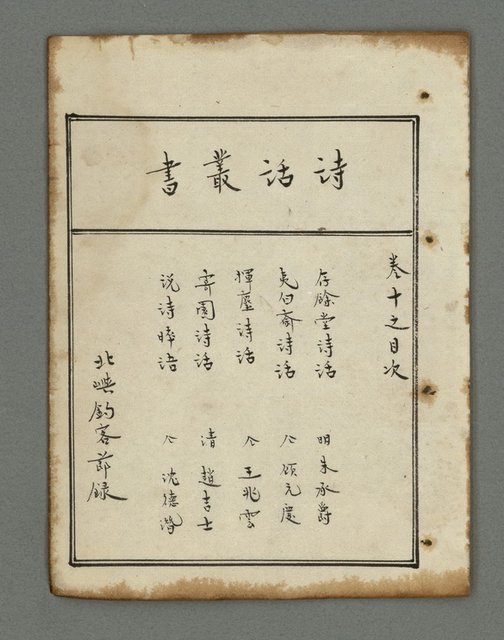 詩話叢書
卷十之目次
存餘堂詩話 明 朱承爵
夷白齋詩話 仝 顧元慶
揮麈詩話 仝 王兆雲
寄園詩話 清 趙吉士
说诗晬语 仝 沈德潛
北嶼釣客節録